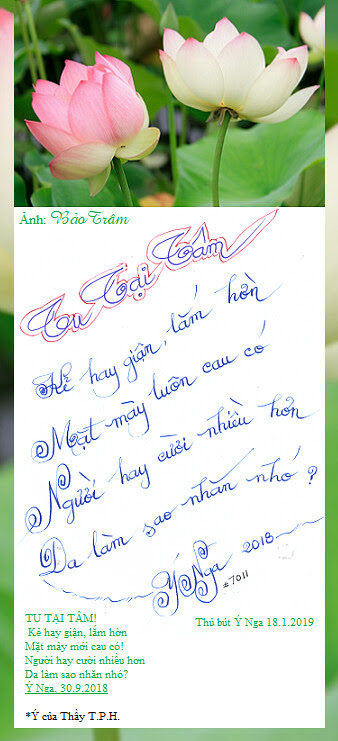 Ảnh: Bảo Trâm
Tu Tại Tâm
Kẻ hay giận, lắm hờn
Mặt mày luôn cau có
Người hay cười nhiều hơn
Da làm sao nhăn nhó?
Ý Nga 2018
#7011
TU TẠI TÂM!
Kẻ hay giận, lắm hờn
Mặt mày mới cau có!
Người hay cười nhiều hơn
Da làm sao nhăn nhó?
Ý Nga, 30.9.2018
Thủ bút Ý Nga 18.1.2019
*Ý của Thầy T.P.H.